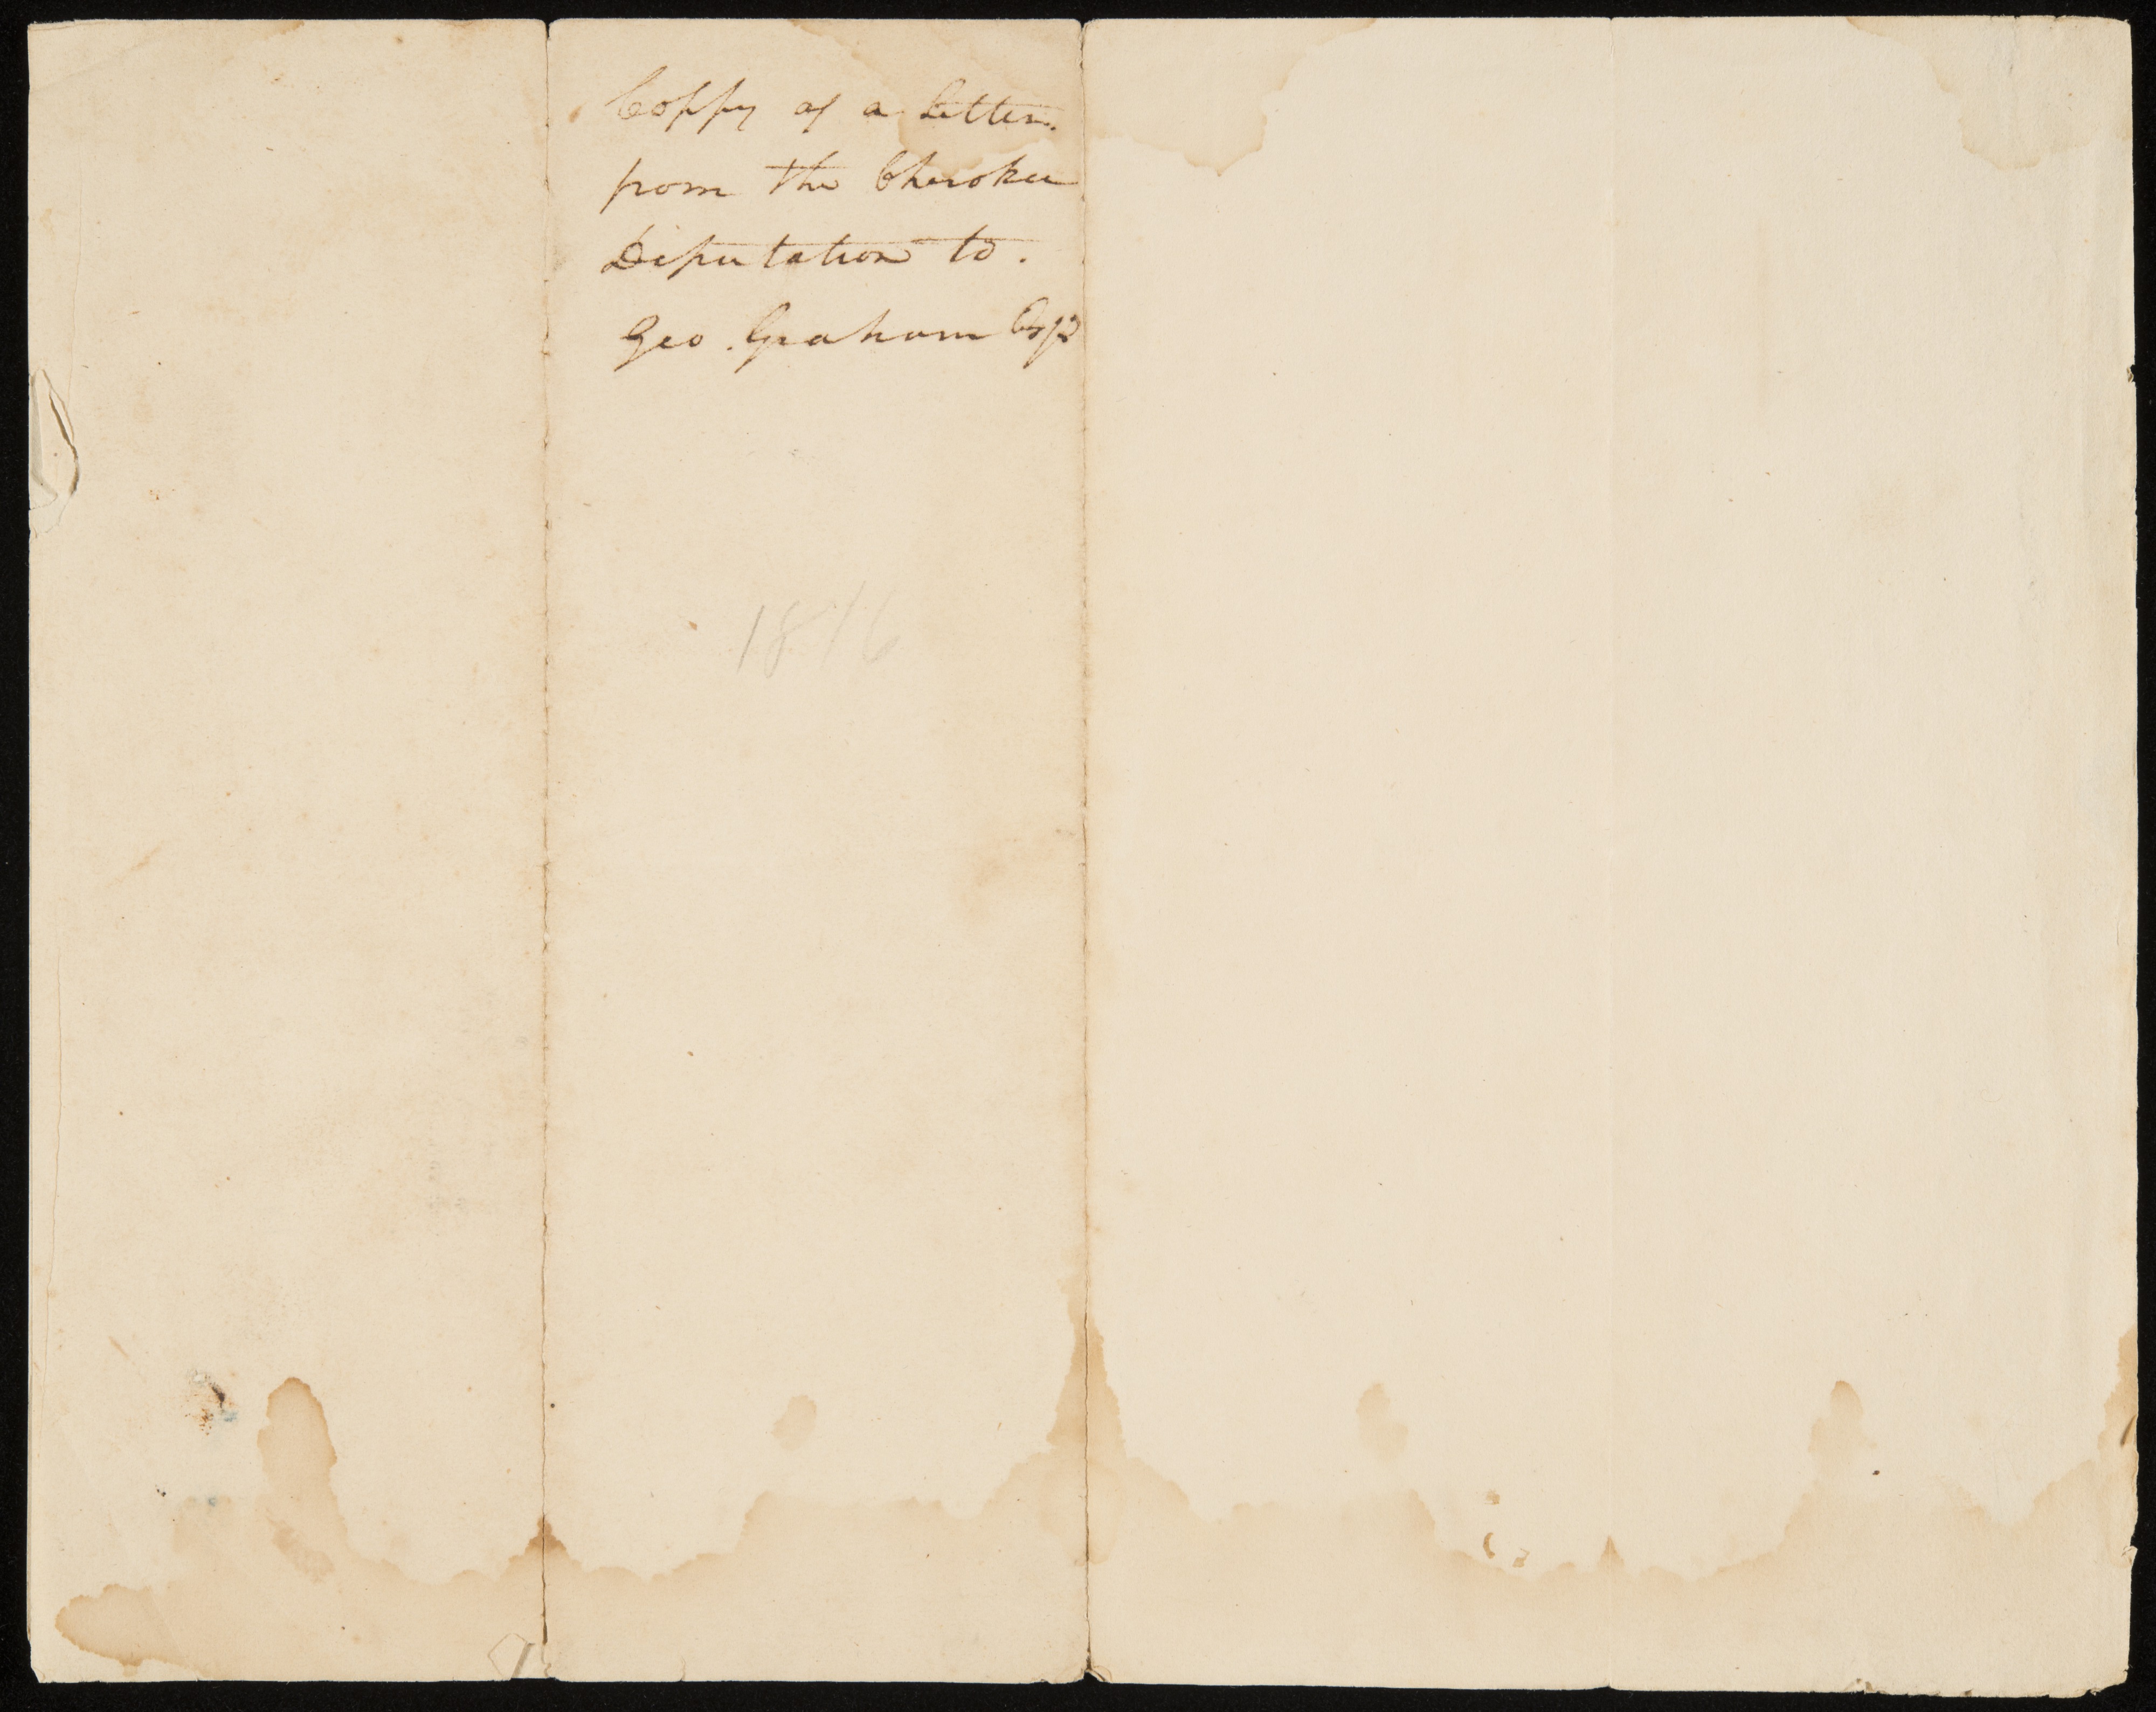 Coppy of a letter.
from the Cherokee
Deputation to.
Geo. Graham Esqr
1816